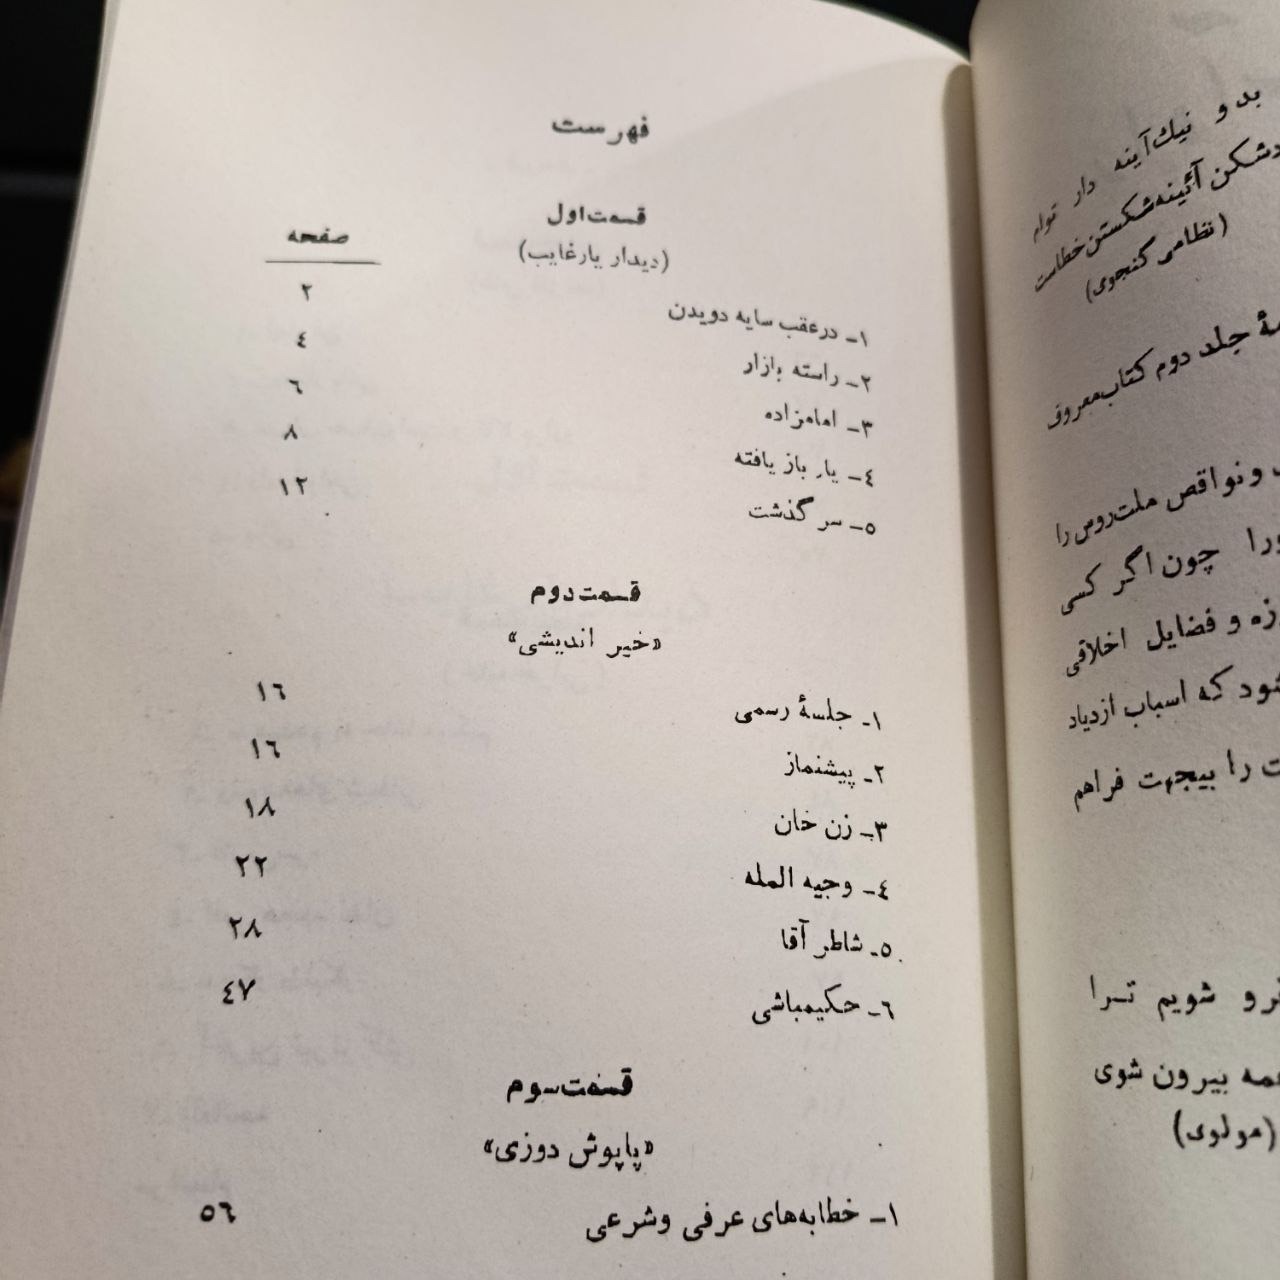 فهرست
قسمت اول
صفحه
(دیدار یار غایب)
۱ـ در عقب سایه دویدن ۲
۲ـ راسته بازار ٤
۳ـ امامزاده ٦
٤ـ یار باز یافته ۸
۵ـ سر گذشت ۱۲
قسمت دوم
«خیر اندیشی»
۱ـ جلسهٔ رسمی ۱٦
۲ـ پیشنماز ۱٦
۳ـ زن خان ۱۸
٤ـ وجیه المله ۲۲
۵ـ شاطر آقا ۲۸
٦ـ حکیمباشی ٤۷
قسمت سوم
«پاپوش دوزی»
۱ـ خطابه‌های عرفی و شرعی ۵٦
بد و نیك آینه دار توام
آئینه شکستن خطاست
(نظامی گنجوی)
جلد دوم کتاب معروف
و نواقص ملت روس را
چون اگر کسی
و فضایل اخلاقی
که اسباب ازدیاد
را بیجهت فراهم
شویم ترا
بیرون شوی
(مولوی)